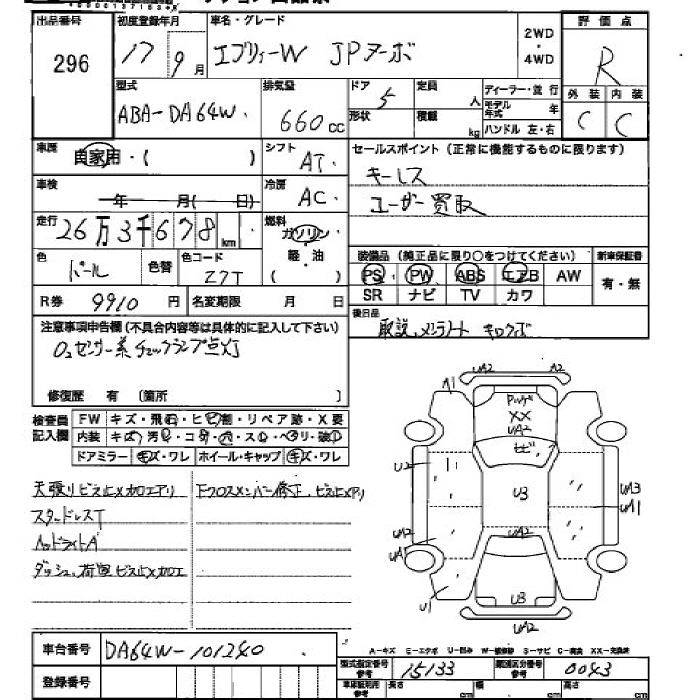 出品番号 296
初度登録年月 17 9月
車名・グレード エブリィーW JPターボ
2WD・4WD
評価点 R
外装 C 内装 C
型式 ABA-DA64W
排気量 660cc
ドア 5
形状
定員 人
積載 kg
ディーラー・並行
モデル年式 年
ハンドル 左・右
車歴 自家用・( )
シフト AT
セールスポイント(正常に機能するものに限ります)
キーレス
ユーザー買取
車検 年 月( 日)
冷房 AC
走行 26万3千678km
燃料 ガソリン・軽油
色 パール 色替
色コード Z7T
装備品(純正品に限り○をつけてください) 新車保証書
PS PW ABS エアB AW 有・無
SR ナビ TV カワ
R券 9910円 名変期限 月 日
後日品 取説、メンテノート キロクボ
注意事項申告欄(不具合内容等は具体的に記入して下さい)
O2センサー系チェックランプ点灯
修復歴 有 〔箇所 〕
検査員記入欄
FW キズ・飛石・ヒビ割・リペア跡・X要
内装 キズ・汚れ・コゲ・穴・スレ・ヘタリ・破れ
ドアミラー キズ・ワレ ホイール・キャップ キズ・ワレ
天張りビス止メ加工アリ
スタッドレスT
ヘッドライトA
ダッシュ、荷室ビス止メ加工
Fクロスメンバー修正、ビス止メアリ
UA2 A2
A1
XX
UA2
ヒビ
U2
U3
UA3
UA1
UA2
UA2
UA1
U1
U3
UA2
車台番号 DA64W-101240
登録番号
A-キズ E-エクボ U-凹み W-補修跡 S-サビ C-腐食 XX-交換済
型式指定番号 参考 15133
類別区分番号 参考 0043
長さ cm 幅 cm 高さ cm